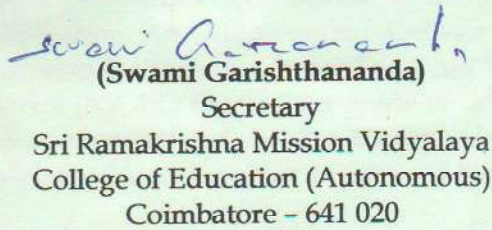 Swami
(Swami Garishthananda)
Secretary
Sri Ramakrishna Mission Vidyalaya
College of Education (Autonomous)
Coimbatore – 641 020